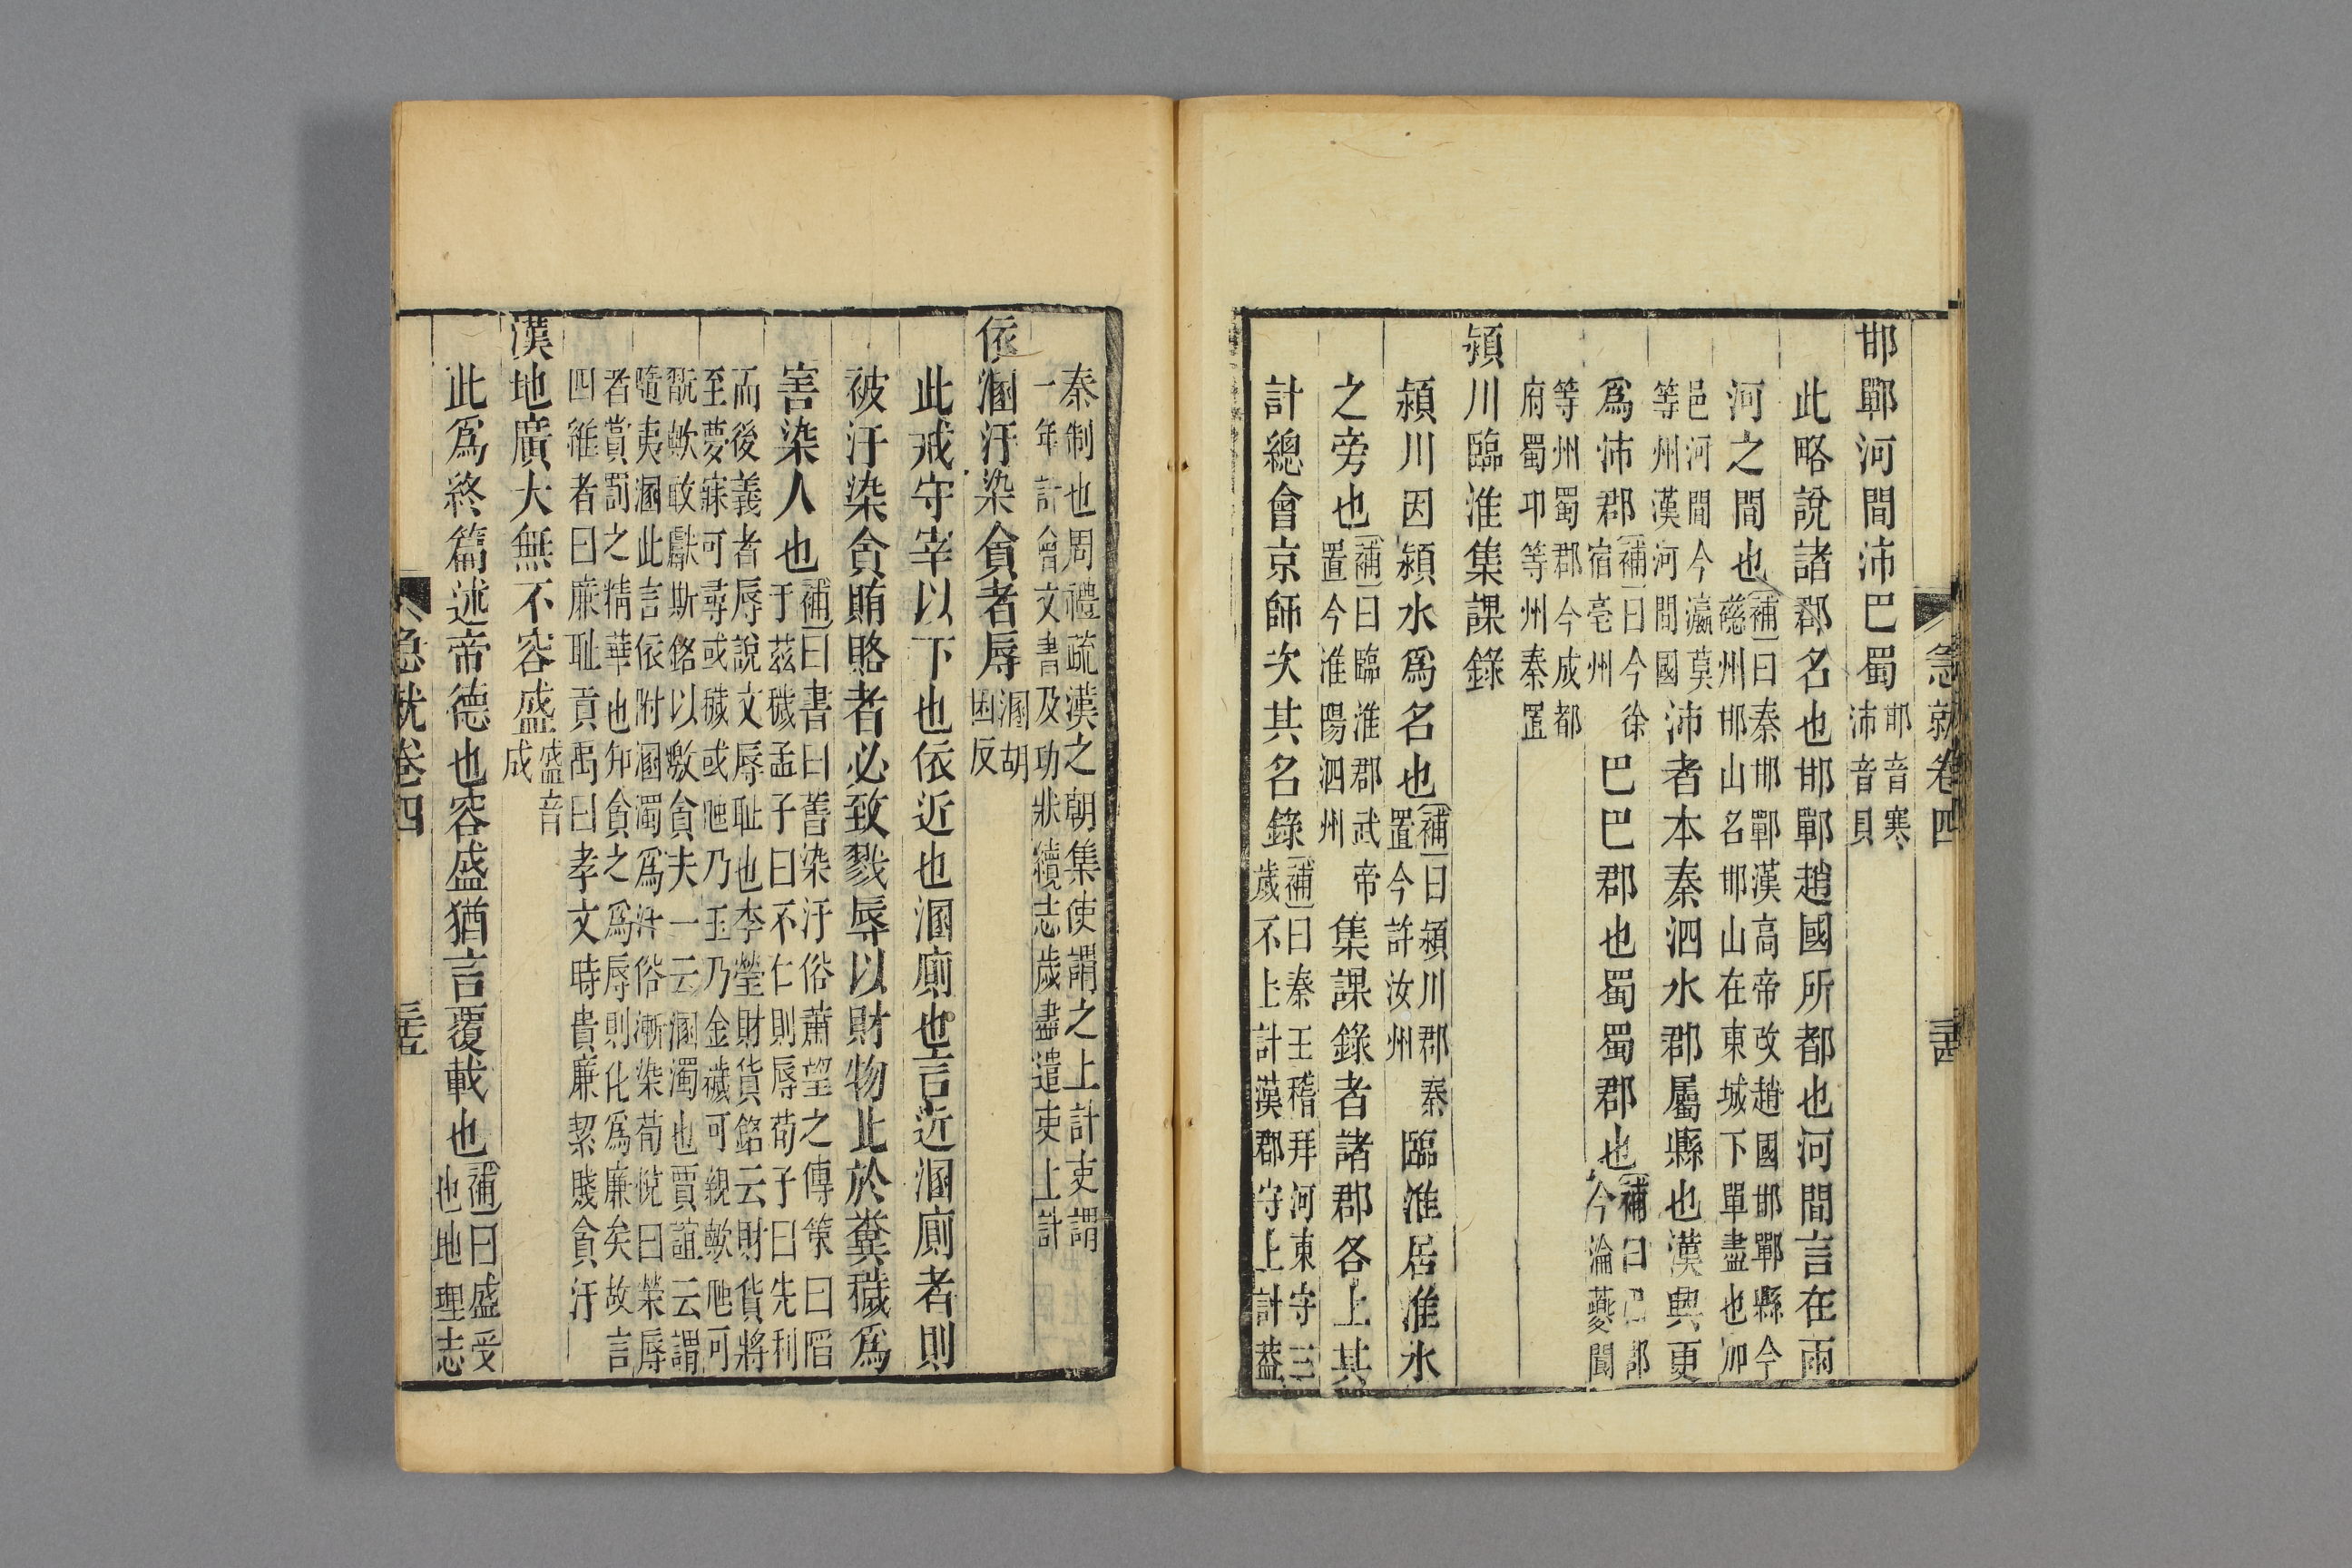 急就卷四
邯鄲河間沛巴蜀邯音寒
沛音貝
此略說諸郡名也邯鄲趙國所都也河間言在兩
河之間也補曰秦邯鄲漢高帝改趙國邯鄲縣今
磁州邯山名邯山在東城下單盡也
邑河間今瀛莫
等州漢河間國沛者本秦泗水郡屬縣也漢興更
為沛郡補曰今徐
宿亳州巴巴郡也蜀蜀郡也補曰巴郡
今瀹夔閬
等州蜀郡今成都
府蜀邛等州秦置
潁川臨淮集課錄
潁川因潁水為名也補曰潁川郡秦
置今許汝州臨淮居淮水
之旁也補曰臨淮郡武帝
置今淮陽泗州集課錄者諸郡各上其
計總會京師次其名錄補曰秦王稽拜河東守三
歲不上計漢郡守上計葢
秦制也周禮疏漢之朝集使謂之上計吏謂
一年計會文書及功狀續志歲盡遣吏上計
依溷汙染貪者辱溷胡
困反
此戒守宰以下也依近也溷廁也言近溷廁者則
被汙染貪賄賂者必致戮辱以財物此於糞穢為
害染人也補曰書曰舊染汙俗蕭望之傳策曰陷
于茲穢孟子曰不仁則辱荀子曰先利
而後義者辱說文辱恥也李瑩財貨銘云財貨將
至夢寐可尋或穢或虵乃玉乃金穢可親歟虵可
翫歟敢獻斯銘以敫貪夫一云溷濁也賈誼云謂
隨夷溷此言依附溷濁為汙俗漸染荀悅曰榮辱
者賞罰之精華也知貪之為辱則化為廉矣故言
四維者曰廉恥貢禹曰孝文時貴廉絜賤貪汙
漢地廣大無不容盛盛音
成
此為終篇述帝德也容盛猶言覆載也補曰盛受
也地理志
急就卷四